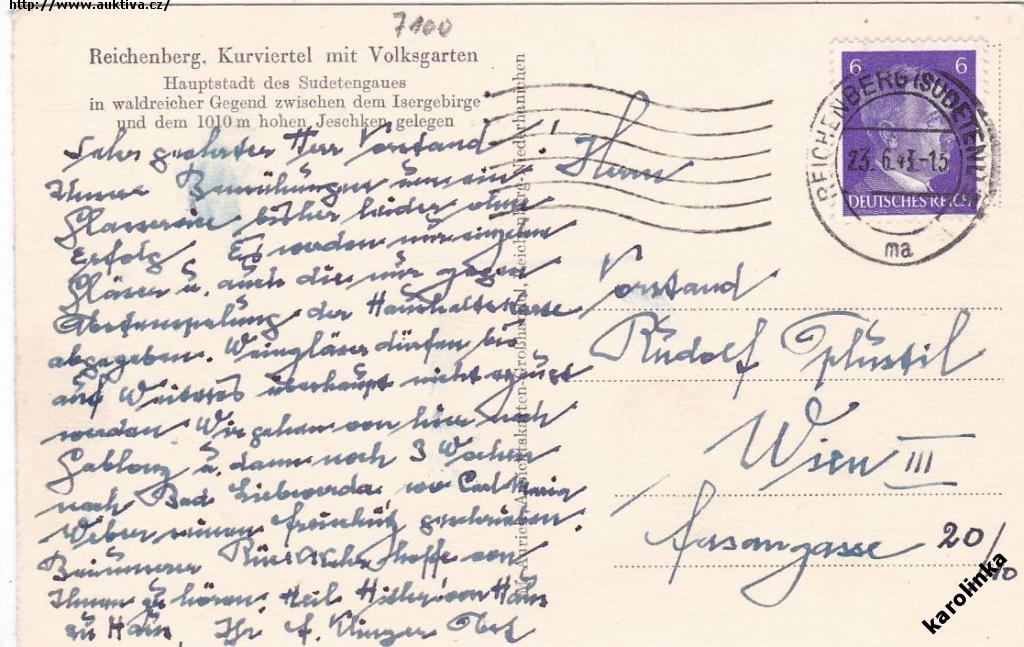 http://www.auktiva.cz/
7100
Reichenberg, Kurviertel mit Volksgarten
Hauptstadt des Sudetengaues
in waldreicher Gegend zwischen dem Isergebirge
und dem 1010 m hohen Jeschken gelegen
Sehr geehrter Herr Vorstand!
Ihnen Bemühungen um ein
Glasservice bisher leider ohne
Erfolg Es werden nur einzelne
Gläser u. auch die nur gegen
Abstempelung der Haushaltskarte
abgegeben. Weingläser dürfen bis
auf Weiteres überhaupt nicht erzeugt
werden Wir gehen von hier nach
Gablonz u. dann noch 3 Wochen
nach Bad Liebwerda, wo Carl Maria
Weber seinen Freischütz geschrieben.
hoffe von
Ihnen zu hören. Heil Hitler! von Haus
zu Haus, Ihr
6 6
DEUTSCHES REICH
REICHENBERG (SUDETENL)
23.6.43.-15
ma
Herrn
Vorstand
Rudolf
Wien III
Fasangasse 20/10
karolinka